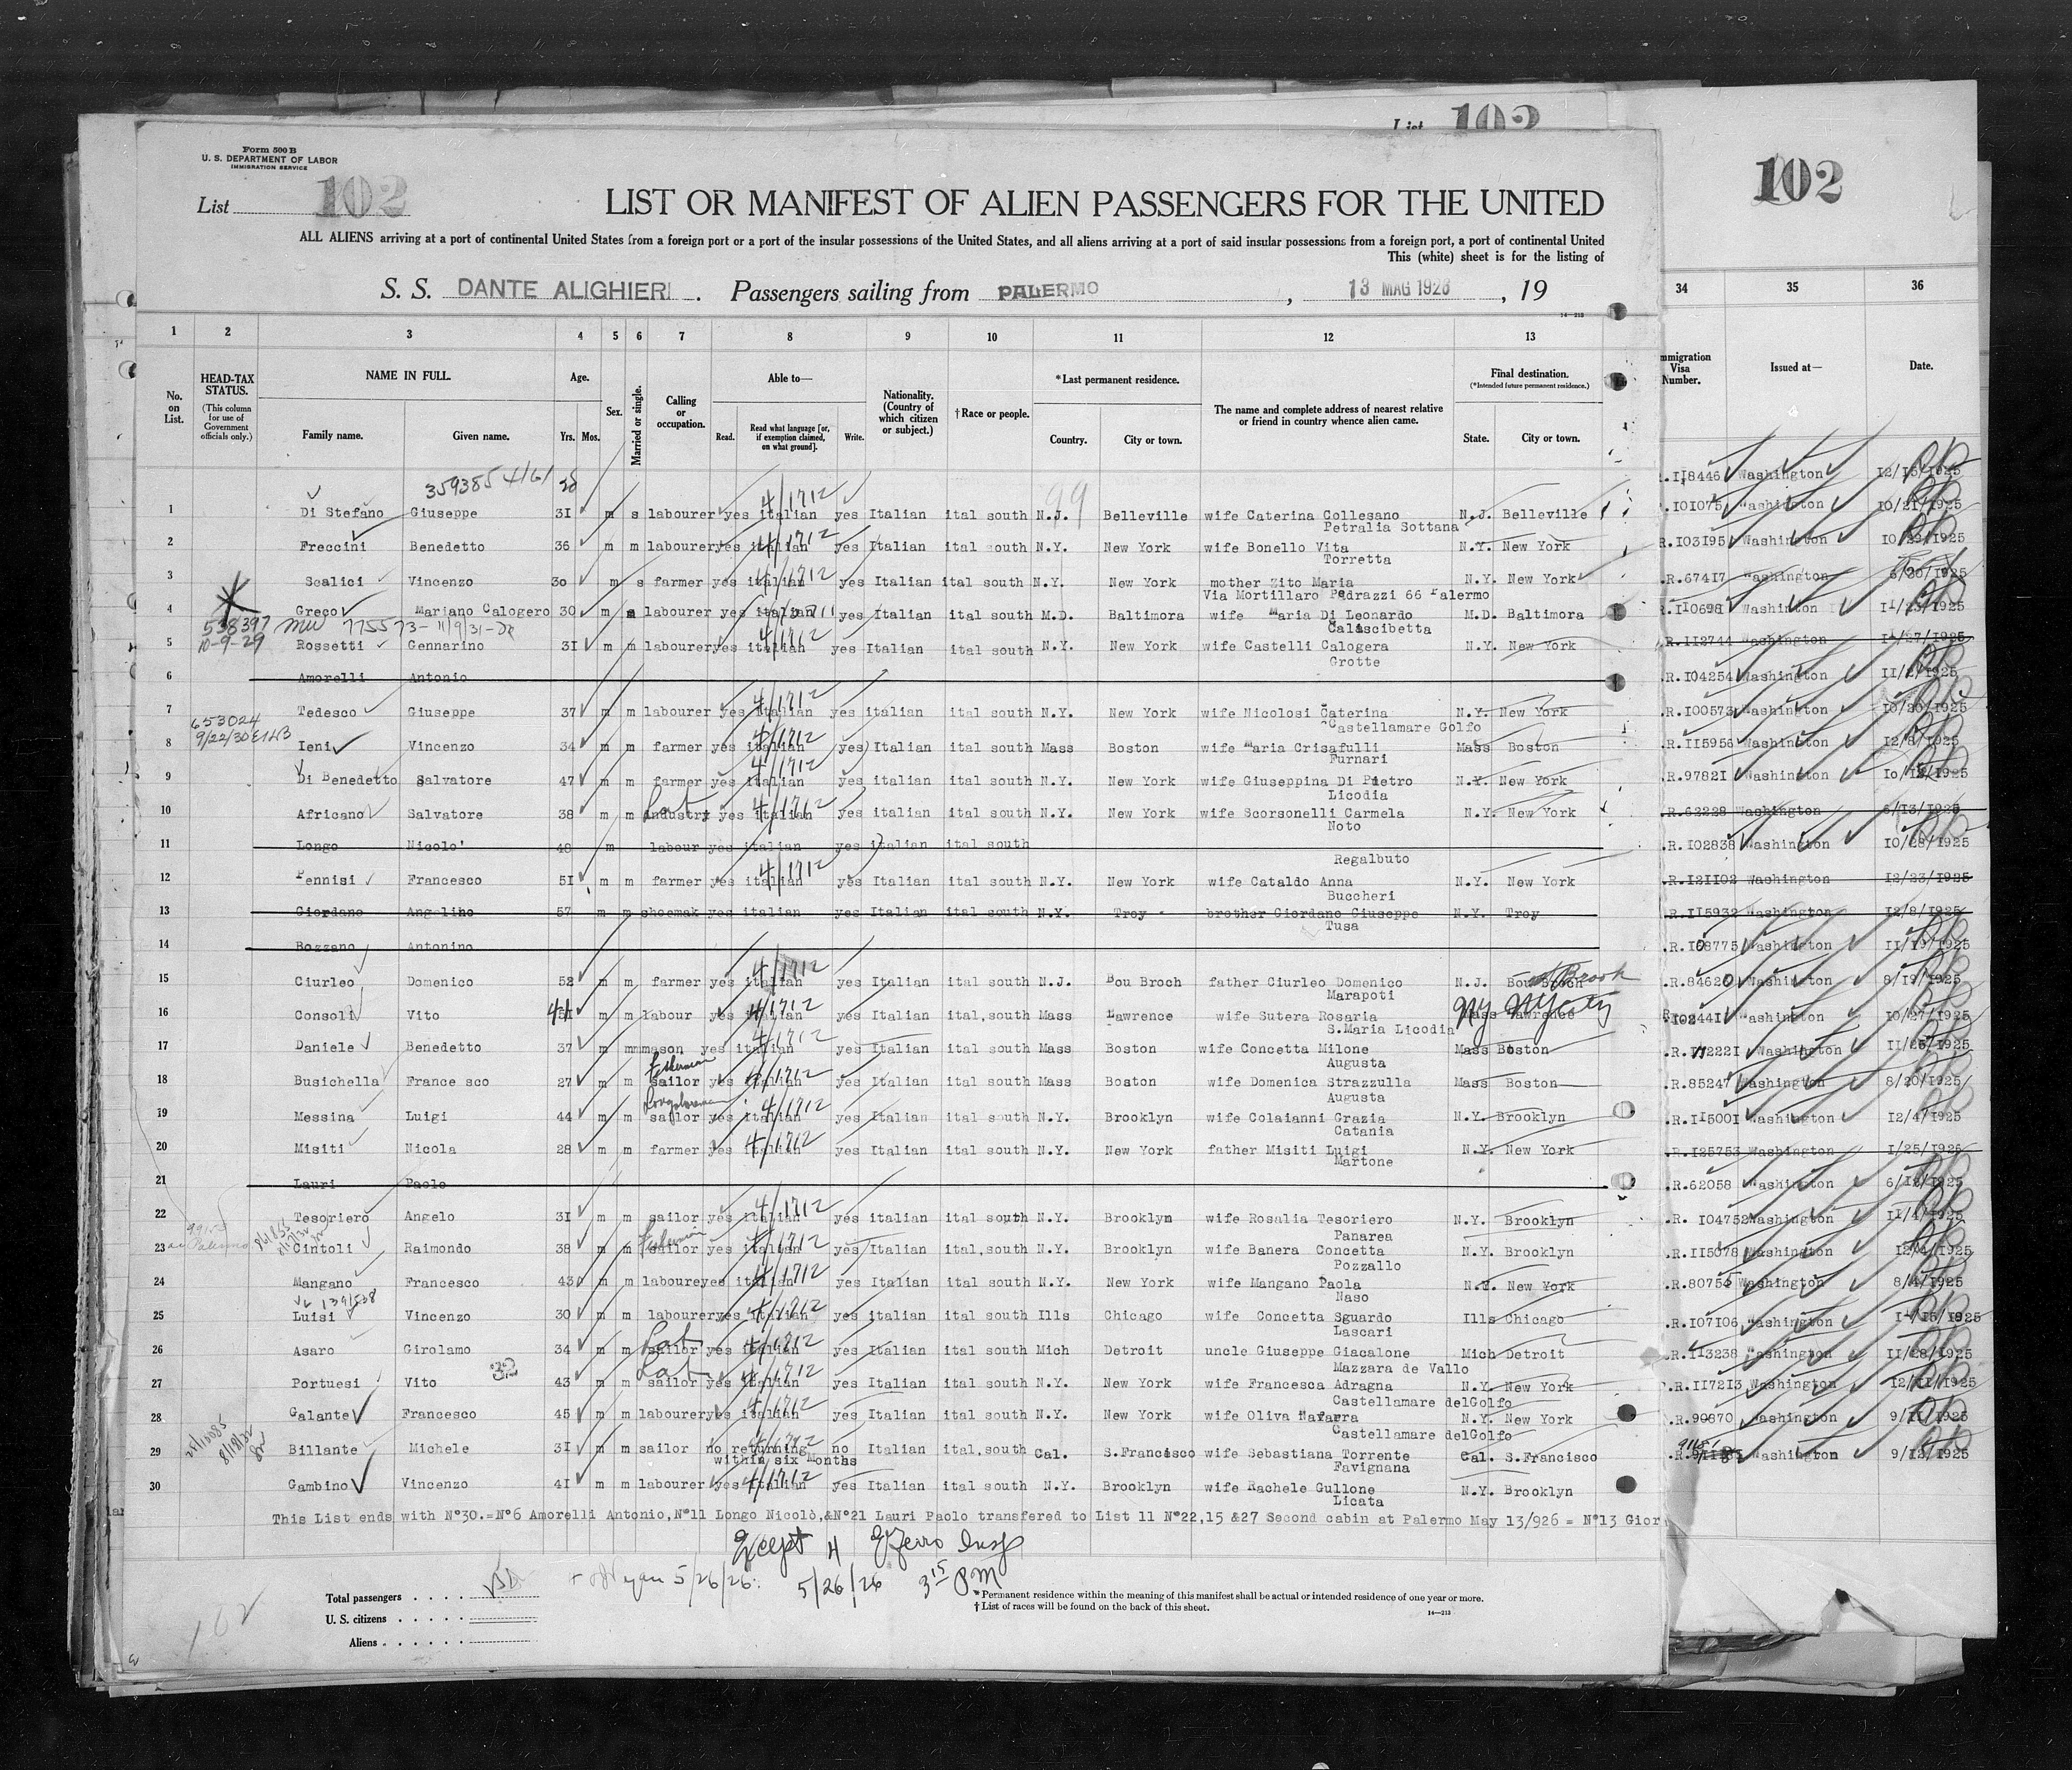 List 102
102
Form 500 B
U. S. DEPARTMENT OF LABOR
IMMIGRATION SERVICE
List 102
LIST OR MANIFEST OF ALIEN PASSENGERS FOR THE UNITED
ALL ALIENS arriving at a port of continental United States from a foreign port or a port of the insular possessions of the United States, and all aliens arriving at a port of said insular possessions from a foreign port, a port of continental United
This (white) sheet is for the listing of
S. S. DANTE ALIGHIERI. Passengers sailing from PALERMO, 13 MAG 1926, 19
14—213
1 2 3 4 5 6 7 8 9 10 11 12 13 34 35 36
No. on List.
HEAD-TAX STATUS.
(This column for use of Government officials only.)
NAME IN FULL.
Family name. Given name.
Age.
Yrs. Mos.
Sex.
Married or single.
Calling or occupation.
Able to—
Read. Read what language [or, if exemption claimed, on what ground]. Write.
Nationality. (Country of which citizen or subject.)
†Race or people.
*Last permanent residence.
Country. City or town.
The name and complete address of nearest relative or friend in country whence alien came.
Final destination.
(*Intended future permanent residence.)
State. City or town.
mmigration Visa Number.
Issued at—
Date.
359385 4/61
99
.R.118446 Washington 12/15/1925
1 Di Stefano Giuseppe 31 m s labourer yes italian 4/1712 yes Italian ital south N.J. Belleville wife Caterina Collesano N.J. Belleville .101075 Washington 10/21/1925
Petralia Sottana
2 Freccini Benedetto 36 m m labourer yes italian 4/1712 yes Italian ital south N.Y. New York wife Bonello Vita N.Y. New York R.103195 Washington 10/22/1925
Torretta
3 Scalici Vincenzo 30 m s farmer yes italian 4/1712 yes Italian ital south N.Y. New York mother Zito Maria N.Y. New York .R.67417 Washington 6/20/1925
Via Mortillaro Pedrazzi 66 Palermo
4 Greco Mariano Calogero 30 m labourer yes italian yes Italian ital south M.D. Baltimora wife Maria Di Leonardo M.D. Baltimora R.110698 Washington 11/23/1925
538397 775573- 11/9/31
Calascibetta
10-9-29
5 Rossetti Gennarino 31 m m labourer yes italian 4/1712 yes Italian ital south N.Y. New York wife Castelli Calogera N.Y. New York .R.112744 Washington 11/27/1925
Grotte
6 Amorelli Antonio .R.104254 Washington 11/2/1925
7 Tedesco Giuseppe 37 m m labourer yes italian 4/1712 yes italian ital south N.Y. New York wife Nicolosi Caterina N.Y. New York .R.100573 Washington 10/20/1925
653024
Castellamare Golfo
9/22/30
8 Ieni Vincenzo 34 m m farmer yes italian 4/1712 yes Italian ital south Mass Boston wife Maria Crisafulli Mass Boston .R.115956 Washington 12/8/1925
Furnari
9 Di Benedetto Salvatore 47 m m farmer yes italian 4/1712 yes italian ital south N.Y. New York wife Giuseppina Di Pietro N.Y. New York .R.97821 Washington
Licodia
10 Africano Salvatore 38 m m industry Lab yes italian 4/1712 yes italian ital south N.Y. New York wife Scorsonelli Carmela N.Y. New York .R.62228 Washington 6/13/1925
Noto
11 Longo Nicolo' 48 m labour yes italian yes italian ital south .R.102838 Washington 10/28/1925
Regalbuto
12 Pennisi Francesco 51 m m farmer yes italian 4/1712 yes Italian ital south N.Y. New York wife Cataldo Anna N.Y. New York .R.121102 Washington 12/23/1925
Buccheri
13 Giordano Angelino 57 m m shoemak yes italian yes Italian ital south N.Y. Troy brother Giordano Giuseppe N.Y. Troy .R.115932 Washington 12/8/1925
Tusa
14 Bozzano Antonino .R.108775 Washington 11/19/1925
15 Ciurleo Domenico 52 m m farmer yes italian 4/1712 yes Italian ital south N.J. Bou Broch father Ciurleo Domenico N.J. Bou Broch Brook .R.84620 Washington 8/19/1925
Marapoti
16 Consoli Vito 41 m m labour yes italian 4/1712 yes Italian ital,south Mass Lawrence wife Sutera Rosaria Mass Lawrence NY NY City Washington 10/27/1925
S.Maria Licodia
17 Daniele Benedetto 37 m mmmason yes italian 4/1712 yes Italian ital south Mass Boston wife Concetta Milone Mass Boston Washington 11/25/1925
Fisherman
Augusta
18 Busichella France sco 27 m m sailor yes italian 4/1712 yes Italian ital south Mass Boston wife Domenica Strazzulla Mass Boston .R.85247 Washington 8/20/1925
Longshoreman
Augusta
19 Messina Luigi 44 m m sailor yes italian 4/1712 yes Italian ital south N.Y. Brooklyn wife Colaianni Grazia N.Y. Brooklyn .R.115001 Washington 12/4/1925
Catania
20 Misiti Nicola 28 m m farmer yes italian 4/1712 yes Italian ital south N.Y. New York father Misiti Luigi N.Y. New York .R.125753 Washington 1/25/1926
Martone
21 Lauri Paolo .R.62058 Washington 6/12/1925
22 Tesoriero Angelo 31 m m sailor yes italian 4/1712 yes italian ital south N.Y. Brooklyn wife Rosalia Tesoriero N.Y. Brooklyn .R. 104752 Washington 11/4/1925
Fisherman
Panarea
23 Cintoli Raimondo 38 m m sailor yes italian 4/1712 yes Italian ital,south N.Y. Brooklyn wife Banera Concetta N.Y. Brooklyn .R.115078 Washington 12/4/1925
Palermo
Pozzallo
24 Mangano Francesco 43 m m laboureyes italian 4/1712 yes Italian ital south N.Y. New York wife Mangano Paola N.Y. New York Washington 8/4/1925
Naso
25 Luisi Vincenzo 30 m m labourer yes italian 4/1712 yes italian ital south Ills Chicago wife Concetta Sguardo Ills Chicago .R.107106 Washington
Lascari
26 Asaro Girolamo 34 m m sailor Lab yes italian 4/1712 yes Italian ital south Mich Detroit uncle Giuseppe Giacalone Mich Detroit .R.113238 Washington 11/28/1925
Mazzara de Vallo
32
27 Portuesi Vito 43 m m sailor Lab yes italian 4/1712 yes Italian ital south N.Y. New York wife Francesca Adragna N.Y. New York .R.117213 Washington 12/11/1925
Castellamare delGolfo
28 Galante Francesco 45 m m labourer yes italian 4/1712 yes Italian ital south N.Y. New York wife Oliva Navarra N.Y. New York .R.90870 Washington 9/11/1925
Castellamare delGolfo
29 Billante Michele 31 m m sailor no returning no Italian ital,south Cal. S.Francisco wife Sebastiana Torrente Cal. S.Francisco Washington 9/12/1925
within six months
Favignana
30 Gambino Vincenzo 41 m m labourer yes italian 4/1712 yes Italian ital south N.Y. Brooklyn wife Rachele Gullone N.Y. Brooklyn
Licata
This List ends with N°30.=N°6 Amorelli Antonio,N°11 Longo Nicolò,&N°21 Lauri Paolo transfered to List 11 N°22,15 &27 Second cabin at Palermo May 13/926 = N°13 Gior
Except 4
5/26/26 5/26/26 3 15 PM
Total passengers . . . .
U. S. citizens . . . . .
Aliens . . . . . .
*Permanent residence within the meaning of this manifest shall be actual or intended residence of one year or more.
†List of races will be found on the back of this sheet.
14—213
102